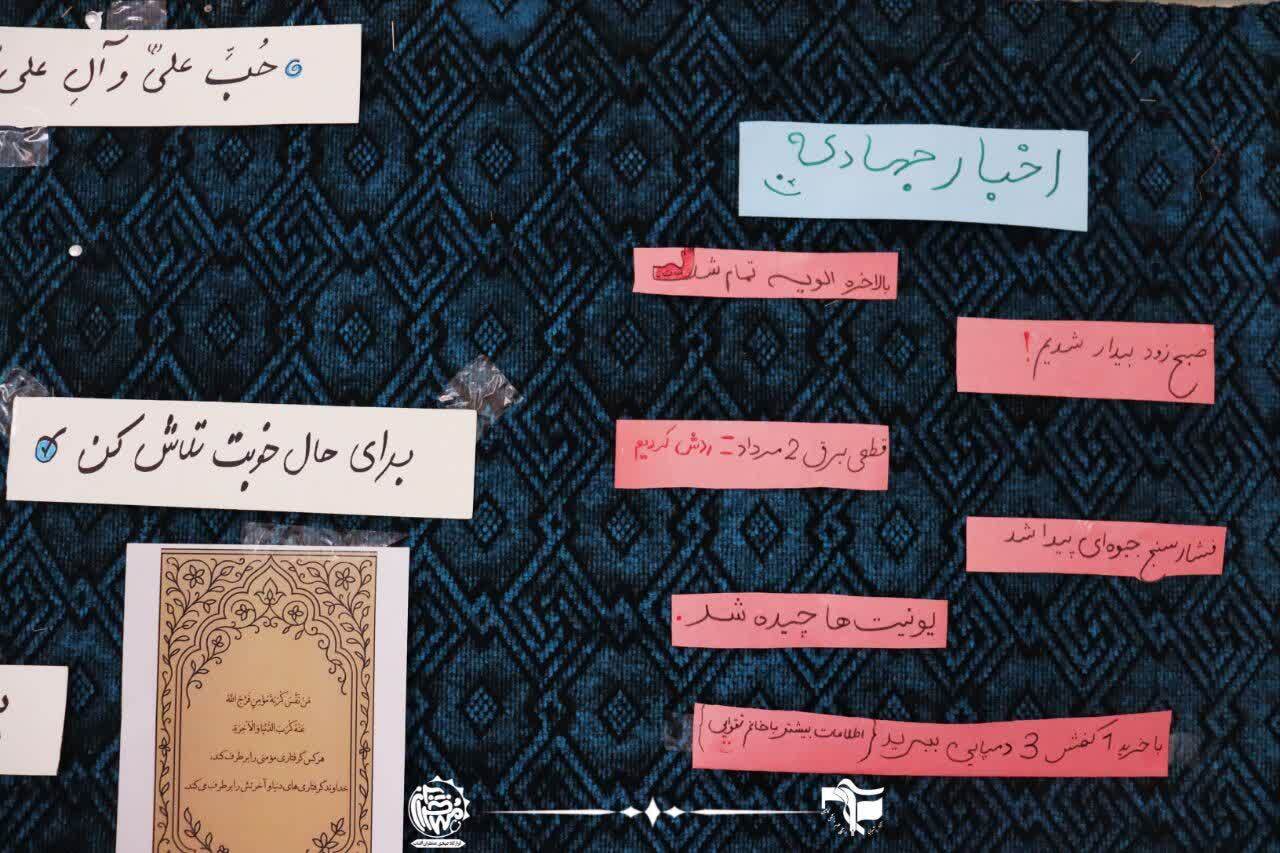 حُبَّ علیّ و آلِ علی
اخبار جهادی
بالاخره الویه تمام شد
صبح زود بیدار شدیم!
قطعی برق 2 مرداد = ردش کردیم
برای حال خوبت تلاش کن
فشارسنج جیوه‌ای پیدا شد
یونیت ها چیده شد.
با خرید 1 کفش 3 دمپایی ببرید {اطلاعات بیشتر با خانم تقوایی}
مَنْ نَفَّسَ كُرْبَةَ مُؤْمِنٍ فَرَّجَ اللهُ
عَنْهُ كُرَبَ الدُّنْيَا وَ الْآخِرَةِ.
هر کس گرفتاری مؤمنی را برطرف کند،
خداوند گرفتاری‌های دنیا و آخرتش را برطرف می‌کند.